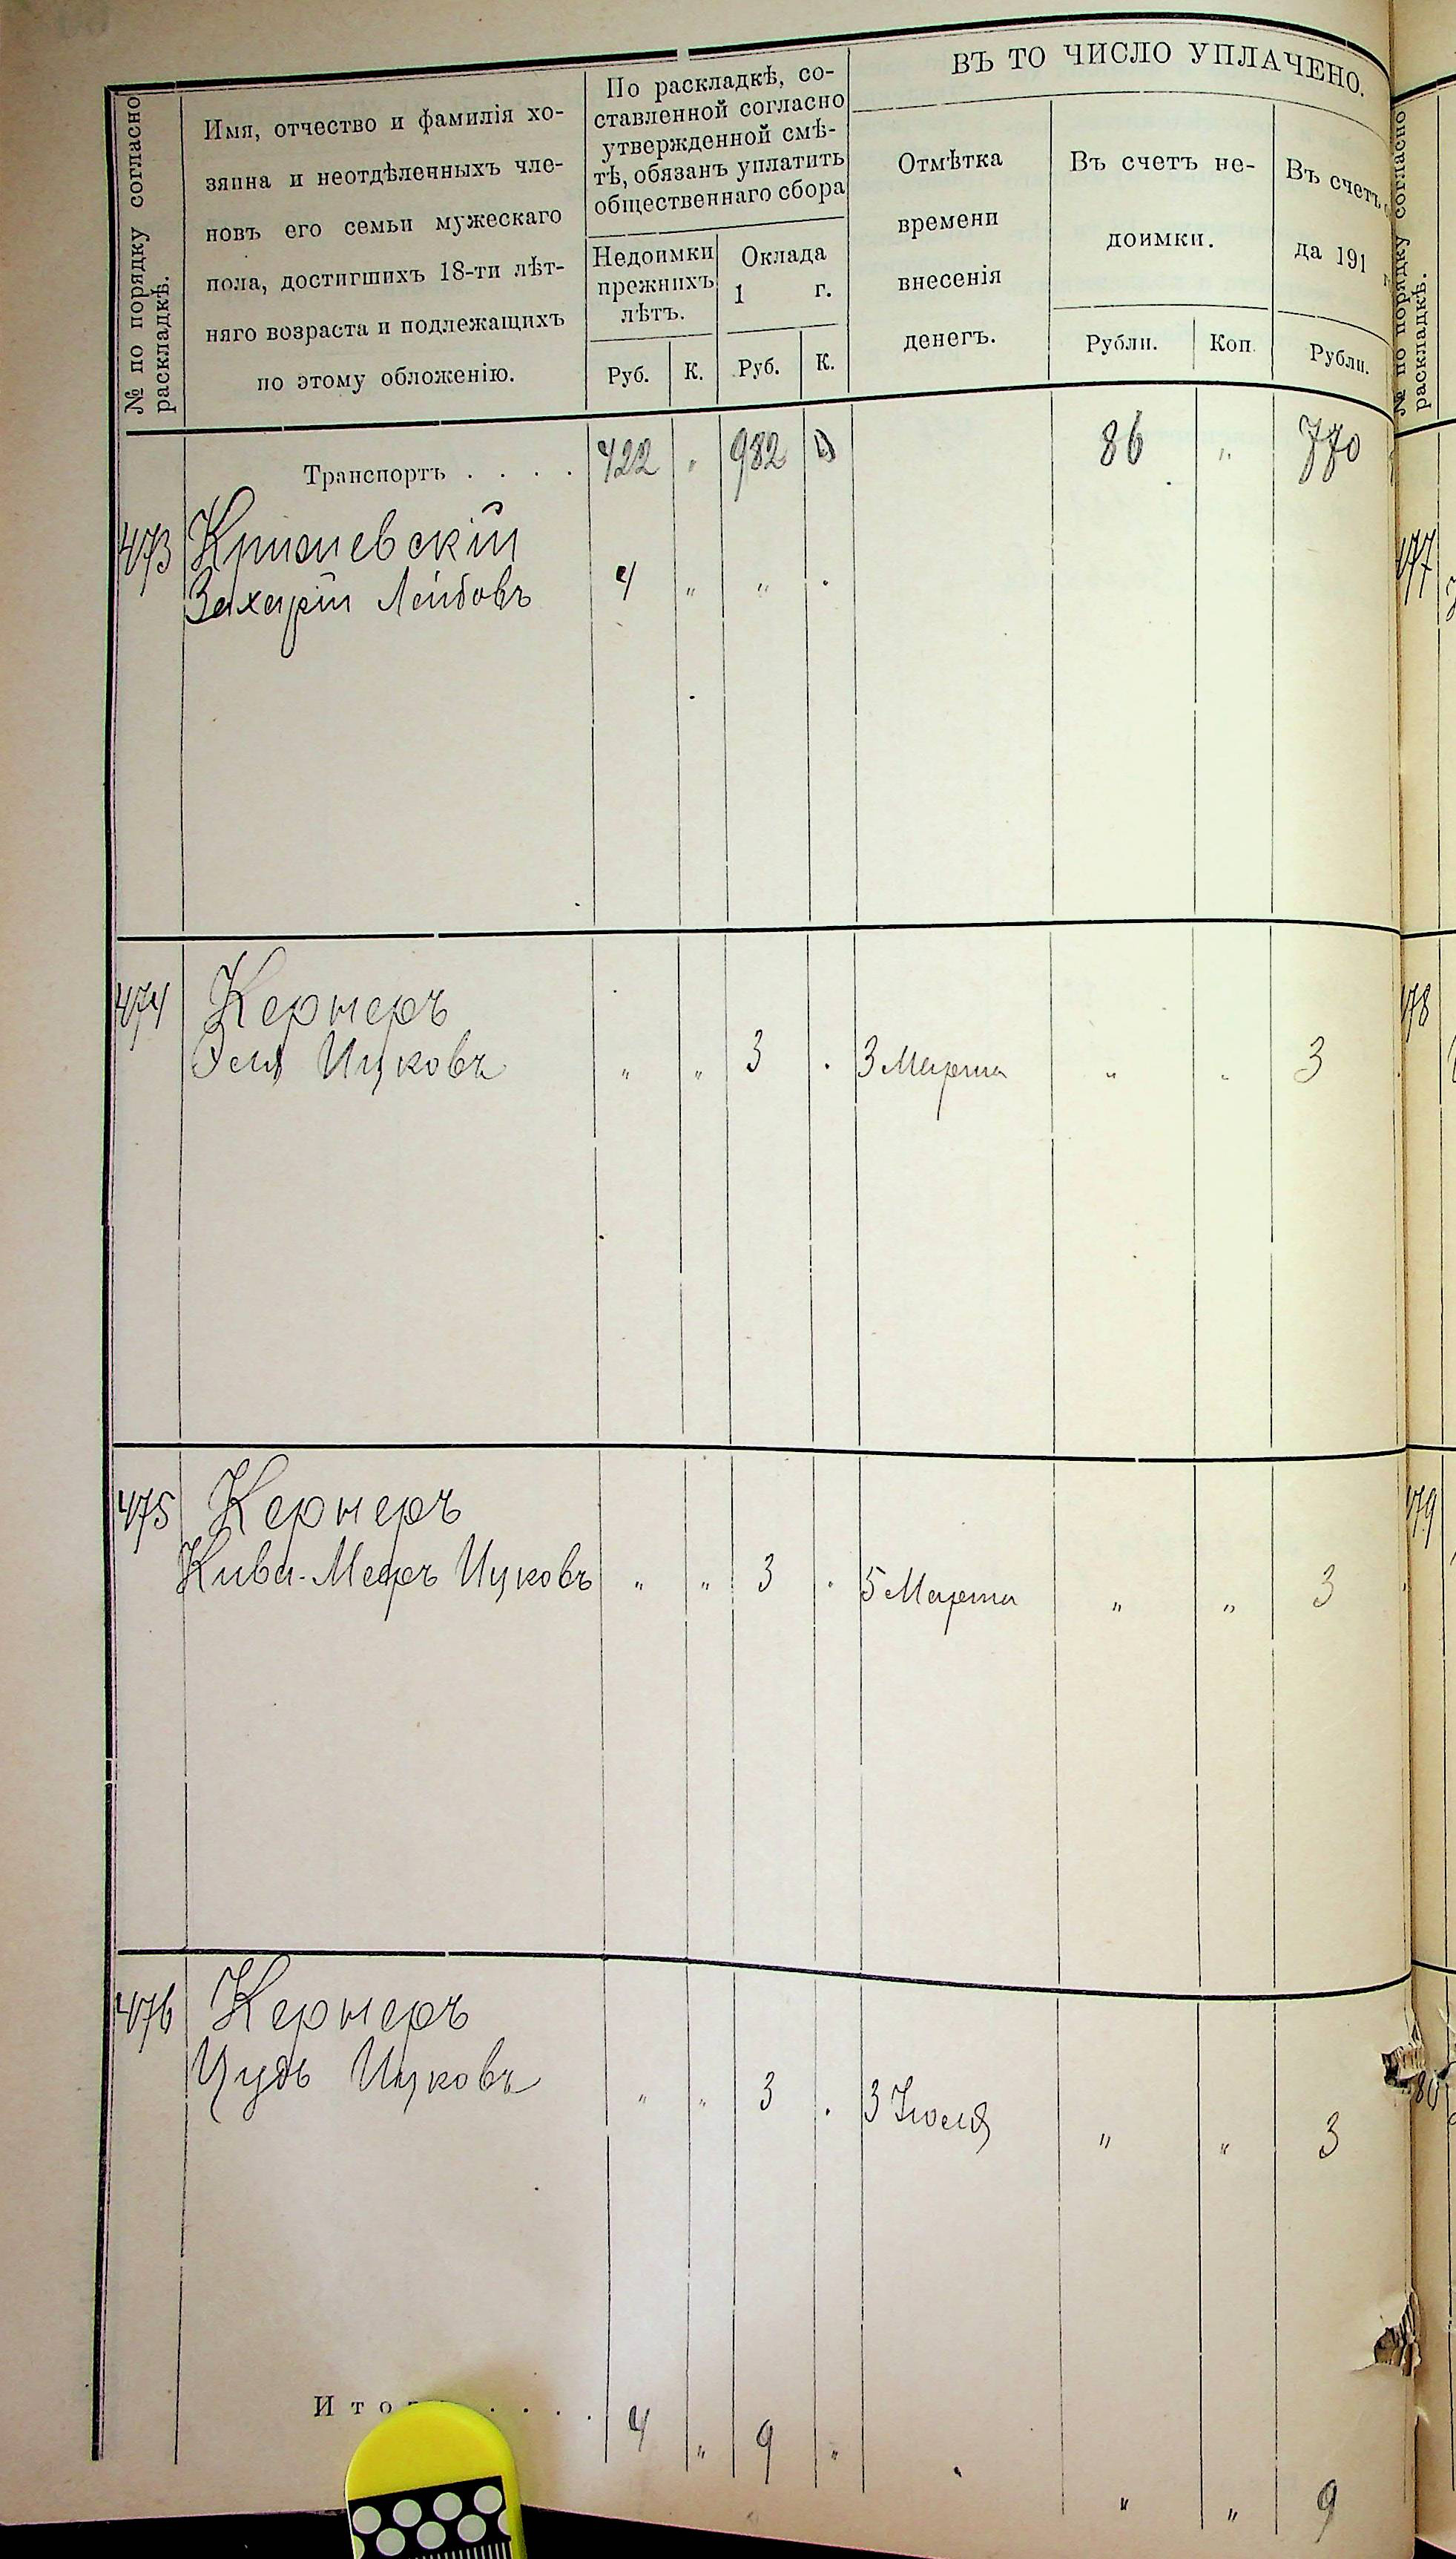 № по порядку согласно
раскладкѣ.
Имя, отчество и фамилія хо-
зяина и неотдѣленныхъ чле-
новъ его семьи мужескаго
пола, достигшихъ 18-ти лѣт-
няго возраста и подлежащихъ
по этому обложенію.
По раскладкѣ, со-
ставленной согласно
утвержденной смѣ-
тѣ, обязанъ уплатить
общественнаго сбора
Недоимки
прежнихъ
лѣтъ.
Оклада
1 г.
Руб. К. Руб. К.
ВЪ ТО ЧИСЛО УПЛАЧЕНО.
Отмѣтка
времени
внесенія
денегъ.
Въ счетъ не-
доимки.
Рубли. Коп.
Въ счетъ
да 191
Рубли.
№ по порядку согласно
раскладкѣ.
Транспортъ . . . . 422 „ 982 86 „ 770
473
Захарій Лейбовъ 4 „ „ .
474 Кернеръ
Эля Ицковъ „ „ 3 . 3 Марта „ „ 3
475 Кернеръ
Кива-Мееръ Ицковъ „ „ 3 . 5 Марта „ „ 3
476 Кернеръ
Ицковъ „ „ 3 . 3 Іюля „ „ 3
4 „ 9 „ „ „ 9
477
478
479